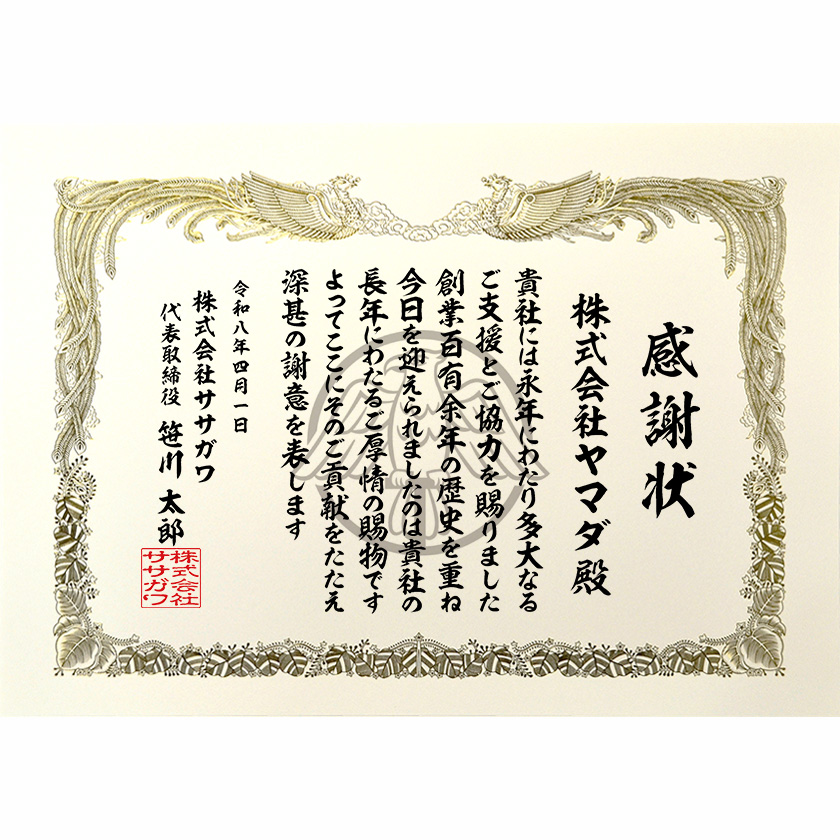 感謝状
株式会社ヤマダ殿
貴社には永年にわたり多大なる
ご支援とご協力を賜りました
創業百有余年の歴史を重ね
今日を迎えられましたのは貴社の
長年にわたるご厚情の賜物です
よってここにそのご貢献をたたえ
深甚の謝意を表します
令和八年四月一日
株式会社ササガワ
代表取締役 笹川太郎
株式会社
ササガワ